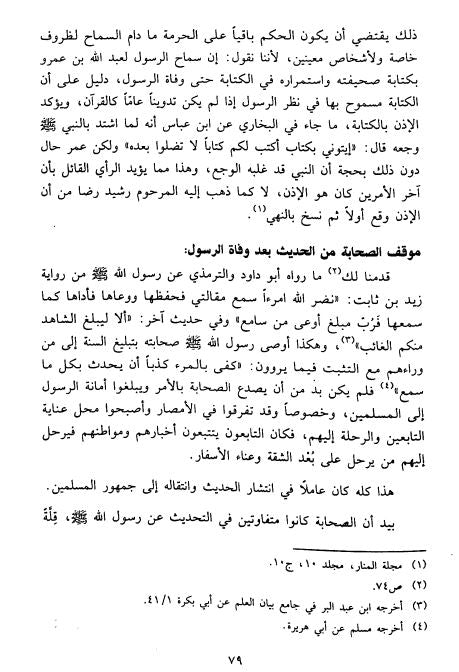 ذلك يقتضي أن يكون الحكم باقياً على الحرمة ما دام السماح لظروف
خاصة ولأشخاص معينين، لأننا نقول: إن سماح الرسول لعبد الله بن عمرو
بكتابة صحيفته واستمراره في الكتابة حتى وفاة الرسول، دليل على أن
الكتابة مسموح بها في نظر الرسول إذا لم يكن تدويناً عامّاً كالقرآن، ويؤكد
الإذن بالكتابة، ما جاء في البخاري عن ابن عباس أنه لما اشتد بالنبي ﷺ
وجعه قال: «إيتوني بكتاب أكتب لكم كتاباً لا تضلوا بعده» ولكن عمر حال
دون ذلك بحجة أن النبي قد غلبه الوجع، وهذا مما يؤيد الرأي القائل بأن
آخر الأمرين كان هو الإذن، لا كما ذهب إليه المرحوم رشيد رضا من أن
الإذن وقع أولاً ثم نسخ بالنهي(١).
موقف الصحابة من الحديث بعد وفاة الرسول:
قدمنا لك(٢) ما رواه أبو داود والترمذي عن رسول الله ﷺ من رواية
زيد بن ثابت: «نضر الله امرءاً سمع مقالتي فحفظها ووعاها فأداها كما
سمعها فَرُبّ مبلغ أوعى من سامع» وفي حديث آخر: «ألا ليبلغ الشاهد
منكم الغائب»(٣)، وهكذا أوصى رسول الله ﷺ صحابته بتبليغ السنة إلى من
وراءهم مع التثبت فيما يروون: «كفى بالمرء كذباً أن يحدث بكل ما
سمع»(٤) فلم يكن بدّ من أن يصدع الصحابة بالأمر ويبلغوا أمانة الرسول
إلى المسلمين، وخصوصاً وقد تفرقوا في الأمصار وأصبحوا محل عناية
التابعين والرحلة إليهم، فكان التابعون يتتبعون أخبارهم ومواطنهم فيرحل
إليهم من يرحل على بُعْد الشقة وعناء الأسفار.
هذا كله كان عاملاً في انتشار الحديث وانتقاله إلى جمهور المسلمين.
بيد أن الصحابة كانوا متفاوتين في التحديث عن رسول الله ﷺ، قِلَّةً
(١) مجلة المنار، مجلد ١٠، ج١٠.
(٢) ص٧٤.
(٣) أخرجه ابن عبد البر في جامع بيان العلم عن أبي بكرة ٤١/١
(٤) أخرجه مسلم عن أبي هريرة.
٧٩